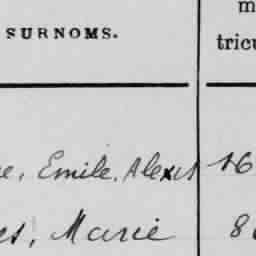 m
SURNOMS.
tricu
e, Emile, Alexis 16
es, Marie 8